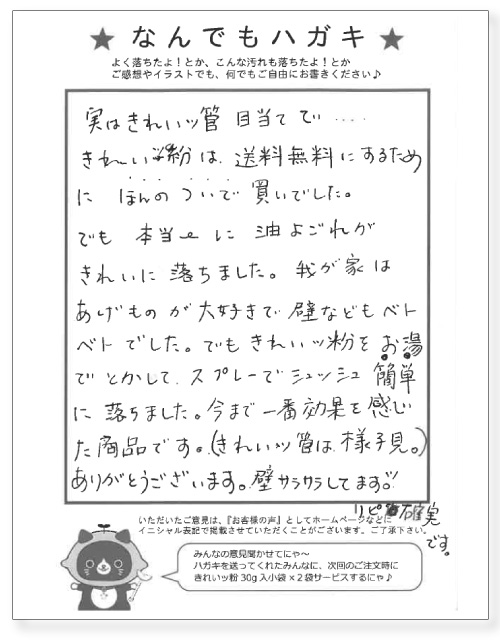 ★ なんでもハガキ ★
よく落ちたよ！とか、こんな汚れも落ちたよ！とか
ご感想やイラストでも、何でもご自由にお書きください♪
実はきれいッ管 目当てで‥‥
きれいッ粉は、送料無料にするため
に ほんのついで買いでした。
でも 本当に 油よごれが
きれいに 落ちました。我が家は
あげものが大好きで 壁などもベト
ベトでした。でもきれいッ粉をお湯
でとかして、スプレーでシュッシュ 簡単
に 落ちました。今まで一番効果を感じ
た商品です。(きれいッ管は、様子見。)
ありがとうございます。壁サラサラしてます!!
リピ確実
です。
いただいたご意見は、『お客様の声』としてホームページなどに
イニシャル表記で掲載させていただくことがございます。ご了承下さい。
みんなの意見聞かせてにゃ〜
ハガキを送ってくれたみんなに、次回のご注文時に
きれいッ粉 30g 入小袋 x 2 袋サービスするにゃ♪